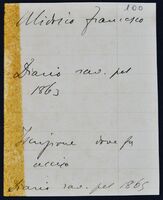 100
Midrico Francesco
Diario rav. pel
1863
Iscrizione dove fu
ucciso
Diario rav. pel 1865